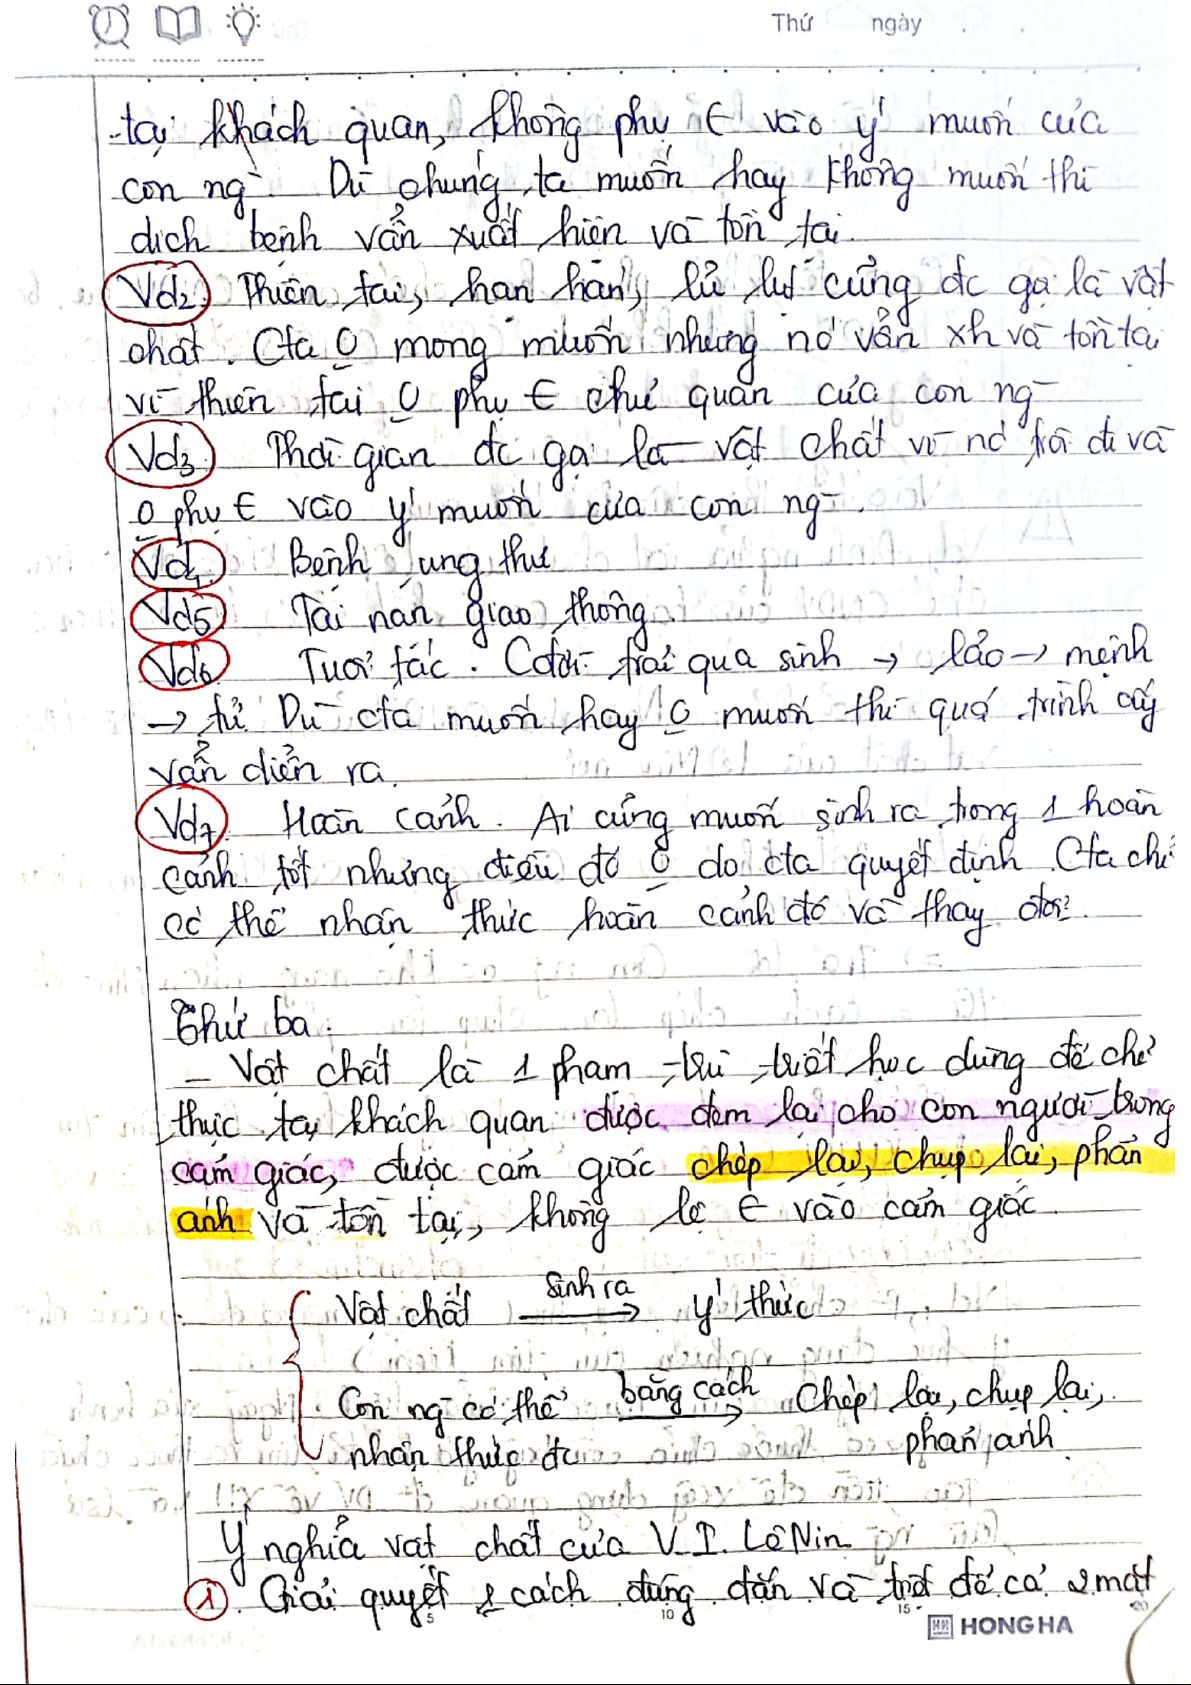 Thứ ngày
tại khách quan, không phụ ∈ vào ý muốn của
con ng` Dù chúng ta muốn hay không muốn thì
dịch bệnh vẫn xuất hiện và tồn tại.
Vd2 Thiên tai, hạn hán, lũ lụt cũng đc gọi là vật
chất. Cta O mong muốn nhưng nó vẫn xh và tồn tại
vì thiên tai O phụ ∈ chủ quan của con ng`
Vd3 Thời gian đc gọi là vật chất vì nó trôi đi và
O phụ ∈ vào ý muốn của con ng`.
Vd4 Bệnh ung thư
Vd5 Tai nạn giao thông.
Vd6 Tuổi tác. Cđời trải qua sinh → lão → mệnh
→ tử Dù cta muốn hay O muốn thì quá trình ấy
vẫn diễn ra.
Vd7 Hoàn cảnh. Ai cũng muốn sinh ra trong 1 hoàn
cảnh tốt nhưng điều đó O do cta quyết định. Cta chỉ
có thể nhận thức hoàn cảnh đó và thay đổi.
Thứ ba:
- Vật chất là 1 phạm trù triết học dùng để chỉ
thực tại khách quan được đem lại cho con người trong
cảm giác, được cảm giác chép lại, chụp lại, phản
ánh và tồn tại, không lệ ∈ vào cảm giác.
Vật chất sinh ra → ý thức
Con ng` có thể bằng cách → Chép lại, chụp lại,
nhận thức đc phản ánh
Ý nghĩa vật chất của V.I. LêNin
1. Giải quyết 1 cách đúng đắn và triệt để cả 2 mặt
5 10 15 20
HONG HA